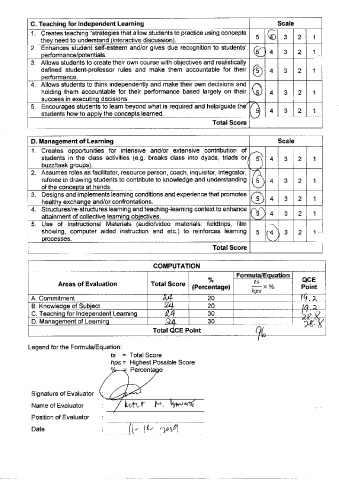 C. Teaching for Independent Learning Scale
1. Creates teaching strategies that allow students to practice using concepts they need to understand (interactive discussion). 5 4 3 2 1
2. Enhances student self-esteem and/or gives due recognition to students' performance/potentials. 5 4 3 2 1
3. Allows students to create their own course with objectives and realistically defined student-professor rules and make them accountable for their performance. 5 4 3 2 1
4. Allows students to think independently and make their own decisions and holding them accountable for their performance based largely on their success in executing decisions. 5 4 3 2 1
5. Encourages students to learn beyond what is required and help/guide the students how to apply the concepts learned. 5 4 3 2 1
Total Score
D. Management of Learning Scale
1. Creates opportunities for intensive and/or extensive contribution of students in the class activities (e.g. breaks class into dyads, triads or buzz/task groups). 5 4 3 2 1
2. Assumes roles as facilitator, resource person, coach, inquisitor, integrator, referee in drawing students to contribute to knowledge and understanding of the concepts at hands. 5 4 3 2 1
3. Designs and implements learning conditions and experience that promotes healthy exchange and/or confrontations. 5 4 3 2 1
4. Structures/re-structures learning and teaching-learning context to enhance attainment of collective learning objectives. 5 4 3 2 1
5. Use of Instructional Materials (audio/video materials: fieldtrips, film showing, computer aided instruction and etc.) to reinforces learning processes. 5 4 3 2 1
Total Score
COMPUTATION
Areas of Evaluation Total Score % (Percentage) Formula/Equation ts/hps × % QCE Point
A. Commitment 24 20 19.2
B. Knowledge of Subject 24 20 19.2
C. Teaching for Independent Learning 24 30 28.8
D. Management of Learning 24 30 28.8
Total QCE Point 96
Legend for the Formula/Equation:
ts = Total Score
hps = Highest Possible Score
% = Percentage
Signature of Evaluator :
Name of Evaluator : M.
Position of Evaluator :
Date :